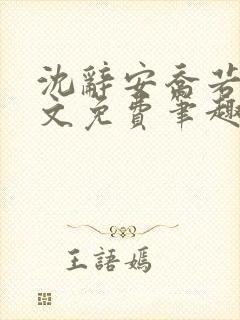 沈辭安喬若
文免費筆趣
王語嫣